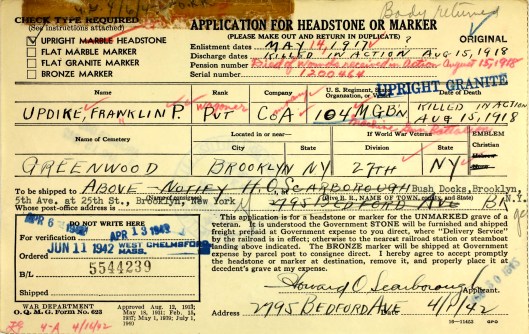 Body returned
CHECK TYPE REQUIRED
(See instructions attached)
UPRIGHT MARBLE HEADSTONE
FLAT MARBLE MARKER
FLAT GRANITE MARKER
BRONZE MARKER
APPLICATION FOR HEADSTONE OR MARKER
(PLEASE MAKE OUT AND RETURN IN DUPLICATE)
ORIGINAL
Enlistment dates MAY 14, 1917
Discharge dates KILLED IN ACTION AUG 15, 1918
Pension number Died of Wounds received in Action August 15, 1918
Serial number 1200464
UPRIGHT GRANITE
Name
Rank
Company
U. S. Regiment, State Organization, or Vessel
Date of Death
UPDIKE, FRANKLIN P. PVT Wagoner Co A 104 M.G.B'N KILLED IN ACTION
AUG 15, 1918
Name of Cemetery
Located in or near—
City
State
If World War Veteran
Division
State
EMBLEM
Christian
Hebrew
None
GREENWOOD BROOKLYN NY 27TH NY
To be shipped to ABOVE - NOTIFY H.O. SCARBOROUGH Bush Docks, Brooklyn,
5th Ave. at 25th St., Brooklyn, New York N.Y.
Whose post-office address is 2795 BEDFORD AVE
DO NOT WRITE HERE
For verification
APR 6 1942
APR 13 1942
Ordered JUN 11 1942 WEST CHELMSFORD
B/L 5544239
This application is for a headstone or marker for the UNMARKED grave of a
veteran. It is understood the Government STONE will be furnished and shipped
freight prepaid at Government expense to you direct, where "Delivery Service"
by the railroad is in effect; otherwise to the nearest railroad station or steamboat
landing above indicated. The BRONZE marker will be shipped at Government
expense by parcel post to consignee direct. I hereby agree to accept promptly
the headstone or marker at destination, remove it, and properly place it at
decedent's grave at my expense.
Howard O. Scarborough
Applicant
2795 BEDFORD AVE 4/1/42
Address
Date
WAR DEPARTMENT
O. Q. M. G. Form No. 623
Approved Aug. 12, 1913;
May 18, 1931; Feb. 15,
1937; May 1, 1939; July 1,
1940
4-A 4/16/42
16—11453 GPO